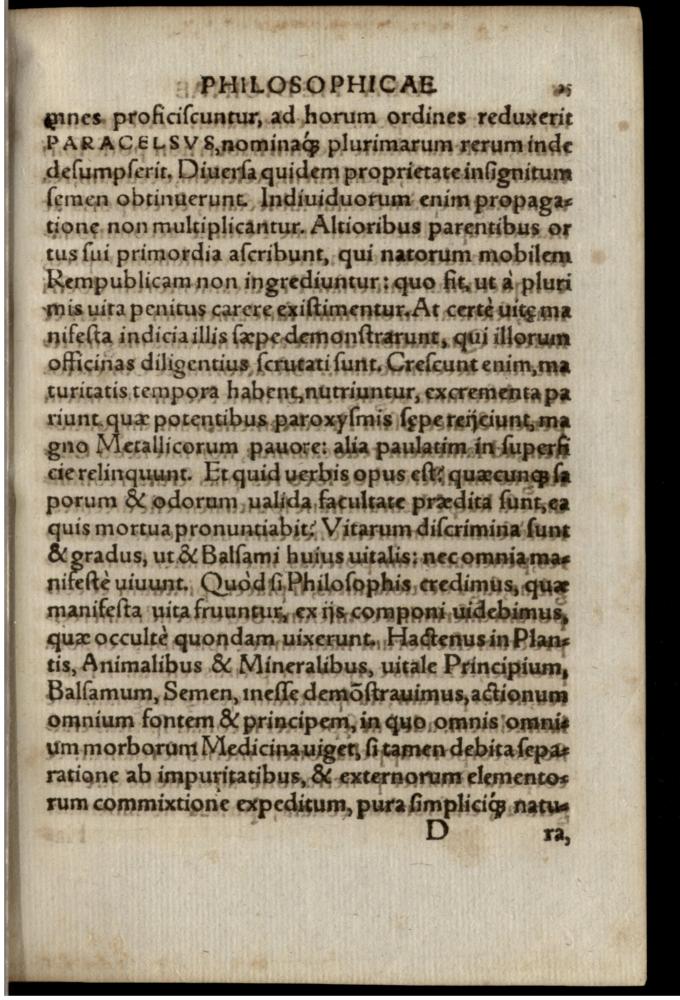 PHILOSOPHICAE 25
mnes proficiſcuntur, ad horum ordines reduxerit
PARACELSVS, nominaq́ꝫ plurimarum rerum inde
deſumpſerit. Diuerſa quidem proprietate inſignitum
ſemen obtinuerunt. Indiuiduorum enim propaga⸗
tione non multiplicantur. Altioribus parentibus or
tus ſui primordia aſcribunt, qui natorum mobilem
Rempublicam non ingrediuntur: quo fit, ut à pluri
mis uita penitus carere exiſtimentur. At certè uitę ma
nifeſta indicia illis ſæpe demonſtrarunt, qui illorum
officinas diligentius ſcrutati ſunt. Creſcunt enim, ma
turitatis tempora habent, nutriuntur, excrementa pa
riunt quæ potentibus paroxyſmis ſępe reijciunt, ma
gno Metallicorum pauore: alia paulatim in ſuperfi
cie relinquunt. Et quid uerbis opus eſt? quæcunqꝫ ſa
porum & odorum ualida facultate prædita ſunt, ea
quis mortua pronuntiabit? Vitarum diſcrimina ſunt
& gradus, ut & Balſami huius uitalis: nec omnia ma⸗
nifeſtè uiuunt. Quòd ſi Philoſophis credimus, quæ
manifeſta uita fruuntur, ex ijs componi uidebimus,
quæ occultè quondam uixerunt. Hactenus in Plan⸗
tis, Animalibus & Mineralibus, uitale Principium,
Balſamum, Semen, ineſſe demõſtrauimus, actionum
omnium fontem & principem, in quo omnis omni⸗
um morborum Medicina uiget, ſi tamen debita ſepa⸗
ratione ab impuritatibus, & externorum elemento⸗
rum commixtione expeditum, pura ſimpliciq́ꝫ natu⸗
D ra,